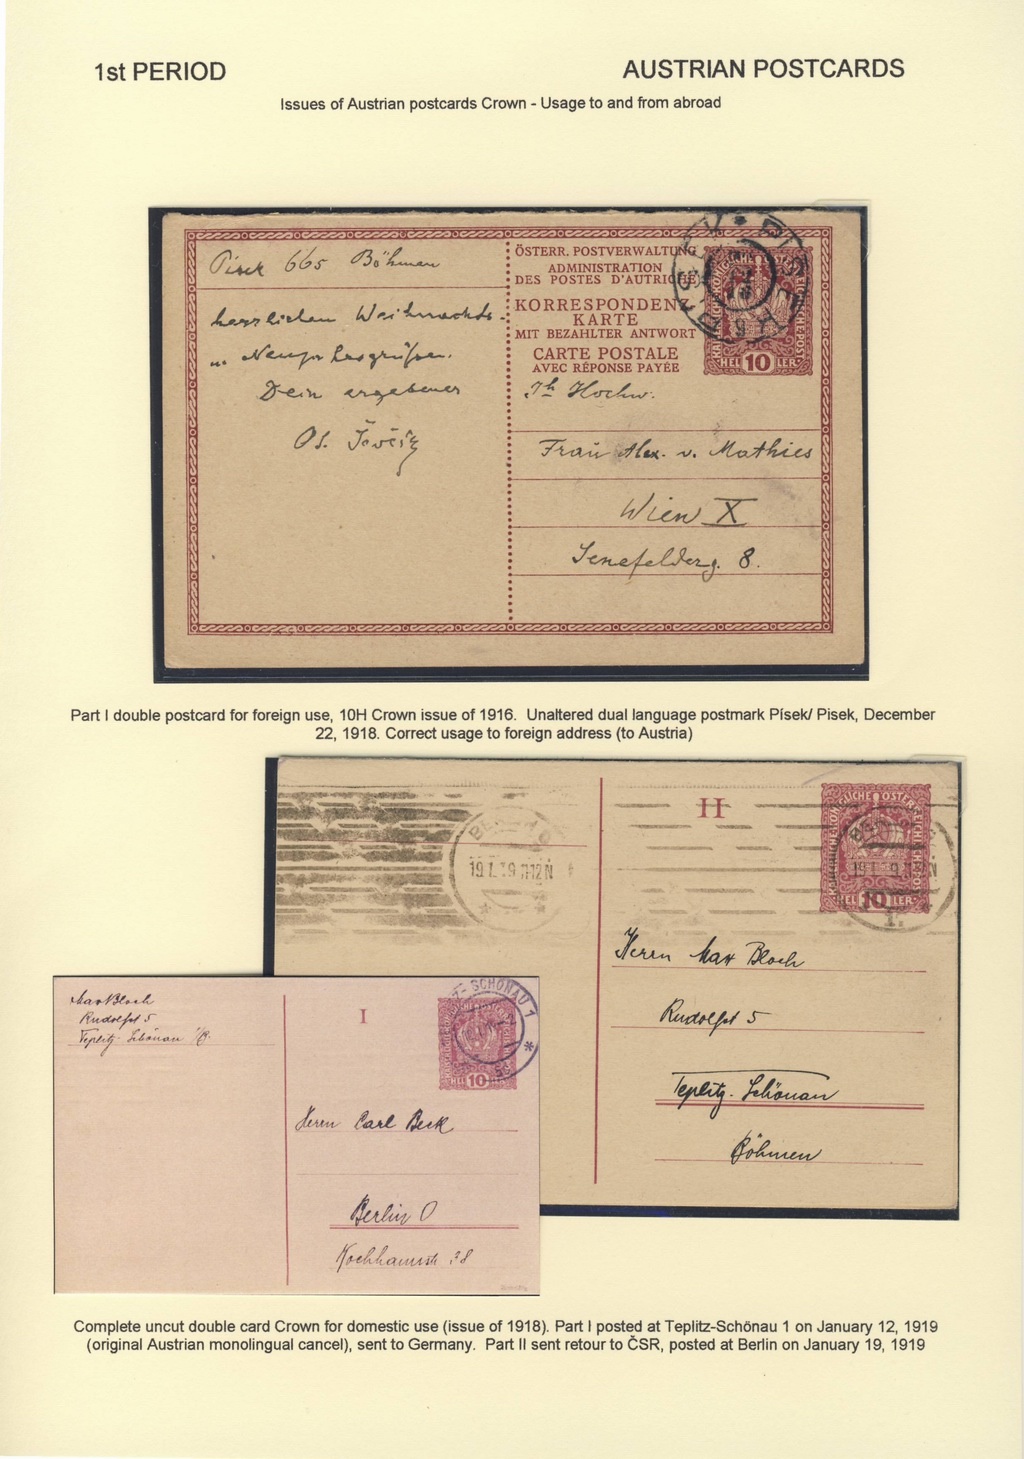 1st PERIOD
AUSTRIAN POSTCARDS
Issues of Austrian postcards Crown - Usage to and from abroad
Pisek 665 Böhmen
herzlichen Weihnachts-
u. Neujahrsgrüßen.
Dein ergebener
ÖSTERR. POSTVERWALTUNG
ADMINISTRATION
DES POSTES D'AUTRICHE
KORRESPONDENZ
KARTE
MIT BEZAHLTER ANTWORT
CARTE POSTALE
AVEC RÉPONSE PAYÉE
HEL 10 LER
Hochw.
Frau Alex. v. Mathies
Wien X
Senefelderg. 8.
Part I double postcard for foreign use, 10H Crown issue of 1916. Unaltered dual language postmark Písek/ Pisek, December
22, 1918. Correct usage to foreign address (to Austria)
II
HEL 10 LER
Herrn Max Bloch
Rudolfst 5
Teplitz-Schönau
Böhmen
Max Bloch
Rudolfst 5
Teplitz-Schönau i/B.
I
TZ-SCHÖNAU 1
HEL 10 LER
Herrn Carl Beck
Berlin O
38
Complete uncut double card Crown for domestic use (issue of 1918). Part I posted at Teplitz-Schönau 1 on January 12, 1919
(original Austrian monolingual cancel), sent to Germany. Part II sent retour to ČSR, posted at Berlin on January 19, 1919